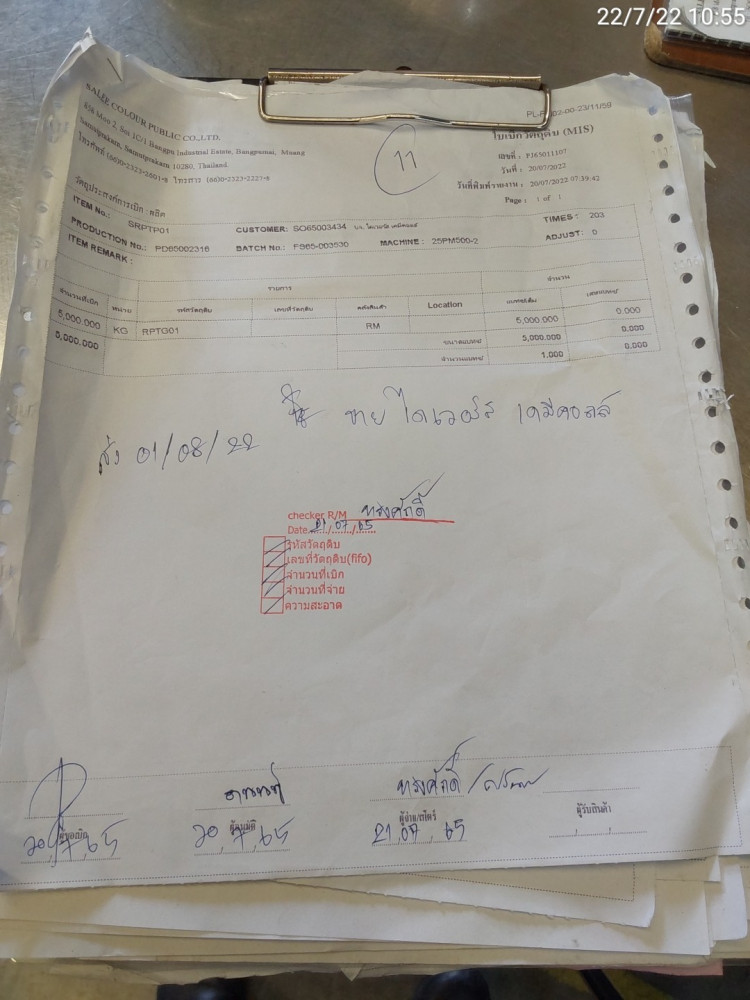 22/7/22 10:55
PL-P-002-00-23/11/59
SALEE COLOUR PUBLIC CO.,LTD.
858 Moo 2, Soi 1C/1 Bangpu Industrial Estate, Bangpumai, Muang
Samutprakarn, Samutprakarn 10280, Thailand.
โทรศัพท์ (66)0-2323-2601-8 โทรสาร (66)0-2323-2227-8
11
ใบเบิกวัตถุดิบ (MIS)
เลขที่ : PI65011107
วันที่ : 20/07/2022
วันที่พิมพ์รายงาน : 20/07/2022 07:39:42
Page : 1 of 1
วัตถุประสงค์การเบิก : ผลิต
ITEM No.: SRPTP01 CUSTOMER: SO65003434 บจ. ไดเวอร์ส เคมิคอลส์ TIMES : 203
PRODUCTION No.: PD65002316 BATCH No.: FS65-003530 MACHINE : 25PM500-2 ADJUST: 0
ITEM REMARK :
รายการ จำนวน
จำนวนที่เบิก หน่วย รหัสวัตถุดิบ เลขที่วัตถุดิบ คลังสินค้า Location แบทช์เต็ม เศษแบทช์
5,000.000 KG RPTG01 RM 5,000.000 0.000
5,000.000 ขนาดแบทช์ 5,000.000 0.000
จำนวนแบทช์ 1.000 0.000
ขาย ไดเวอร์ส เคมีคอลส์
ส่ง 01/08/22
checker R/M ทรงศักดิ์
Date 21/07/65
รหัสวัตถุดิบ
เลขที่วัตถุดิบ(fifo)
จำนวนที่เบิก
จำนวนที่จ่าย
ความสะอาด
ทรงศักดิ์ /
ผู้ขอเบิก ผู้อนุมัติ ผู้จ่าย/สโตร์ ผู้รับสินค้า
20 . 7 . 65 20 . 7 . 65 21 . 07 . 65